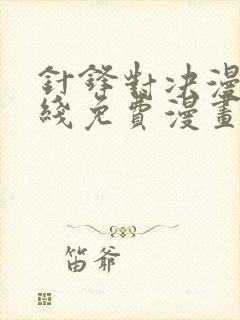 針鋒對決漫
綫免費漫畫
笛爺